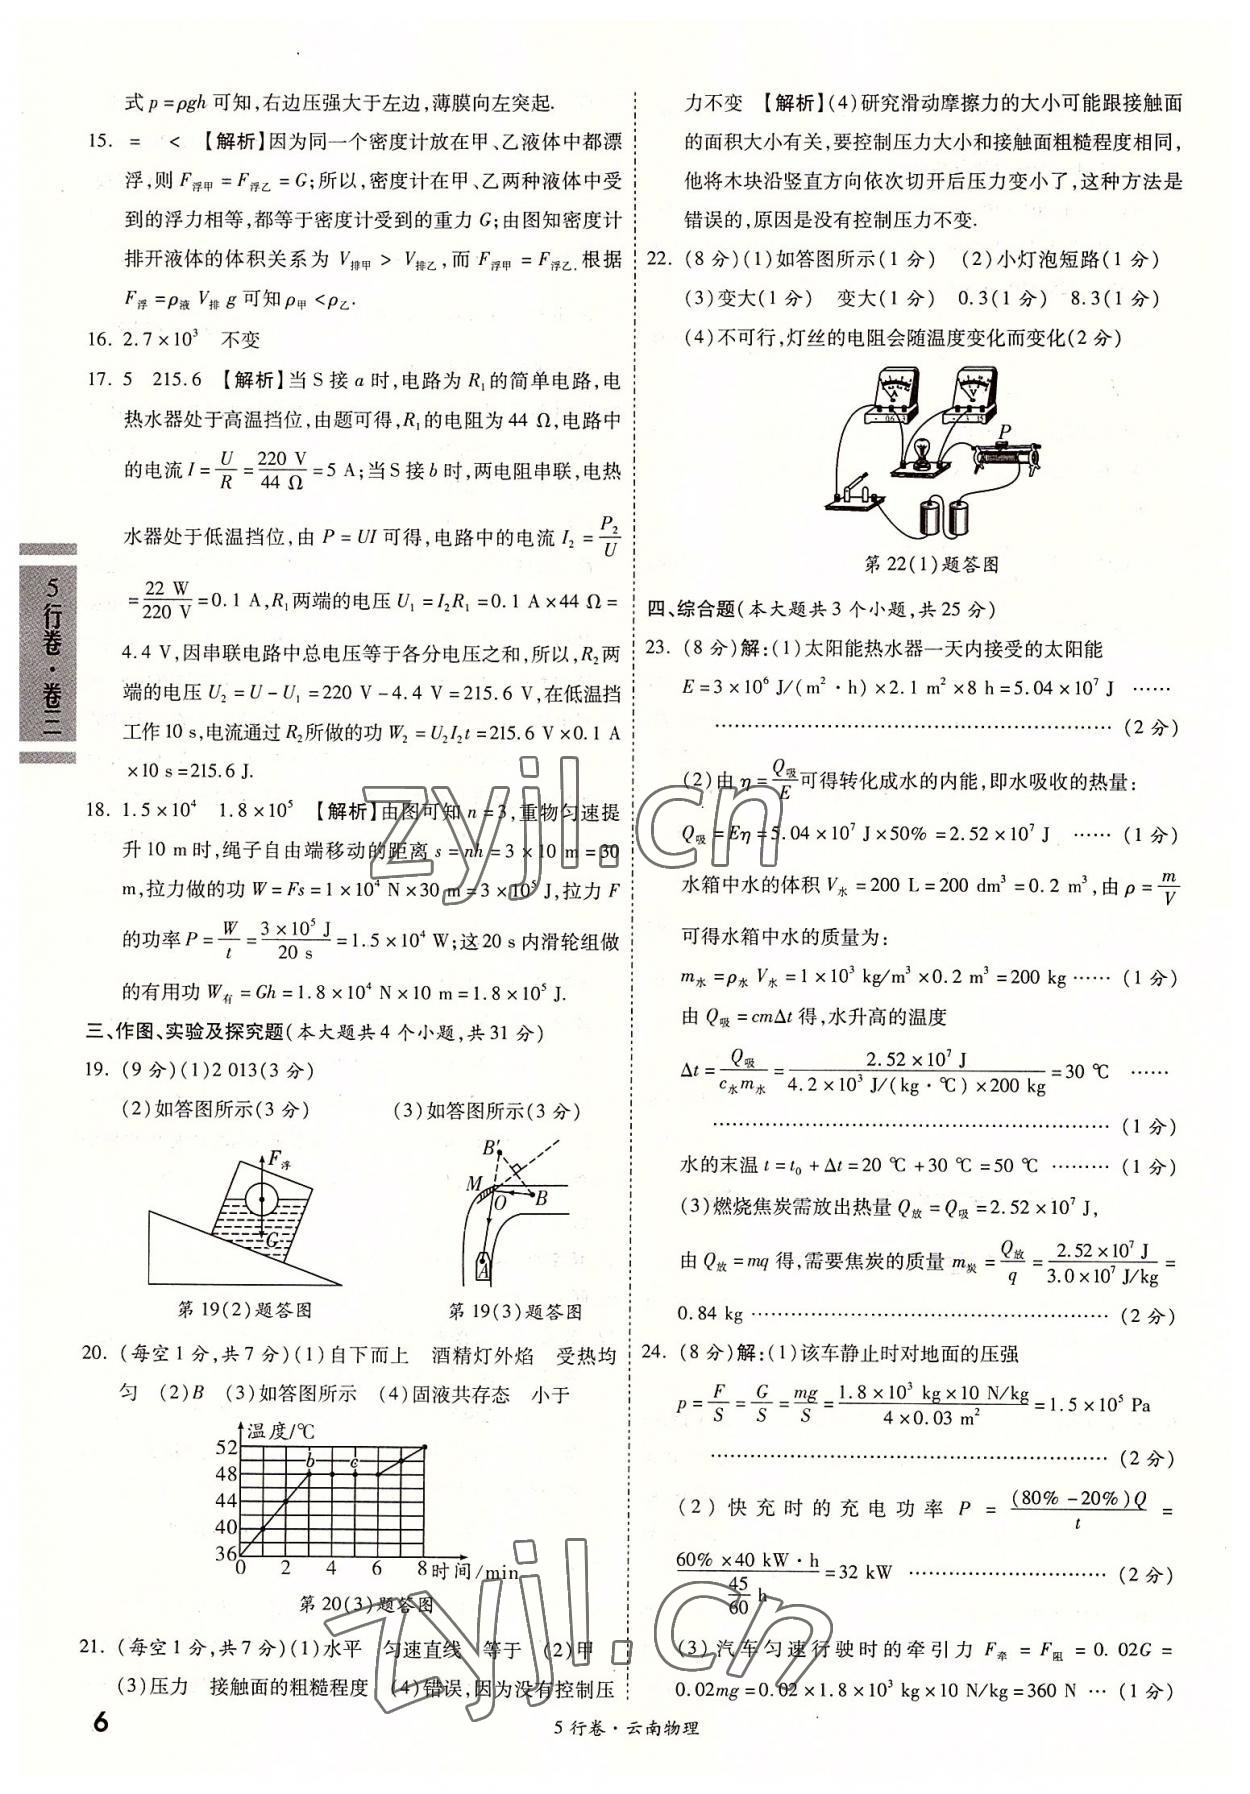 式 p = ρgh 可知,右边压强大于左边,薄膜向左突起.
15. = < 【解析】因为同一个密度计放在甲、乙液体中都漂
浮,则 F浮甲 = F浮乙 = G;所以,密度计在甲、乙两种液体中受
到的浮力相等,都等于密度计受到的重力 G;由图知密度计
排开液体的体积关系为 V排甲 > V排乙,而 F浮甲 = F浮乙.根据
F浮 = ρ液 V排 g 可知 ρ甲 < ρ乙.
16. 2.7×10³ 不变
17. 5 215.6 【解析】当 S 接 a 时,电路为 R₁的简单电路,电
热水器处于高温挡位,由题可得,R₁的电阻为 44 Ω,电路中
的电流 I = U/R = 220 V/44 Ω = 5 A;当 S 接 b 时,两电阻串联,电热
水器处于低温挡位,由 P = UI 可得,电路中的电流 I₂ = P₂/U
= 22 W/220 V = 0.1 A,R₁两端的电压 U₁ = I₂R₁ = 0.1 A×44 Ω =
4.4 V,因串联电路中总电压等于各分电压之和,所以,R₂两
端的电压 U₂ = U - U₁ = 220 V - 4.4 V = 215.6 V,在低温挡
工作 10 s,电流通过 R₂所做的功 W₂ = U₂I₂t = 215.6 V×0.1 A
×10 s = 215.6 J.
18. 1.5×10⁴ 1.8×10⁵ 【解析】由图可知 n = 3,重物匀速提
升 10 m 时,绳子自由端移动的距离 s = nh = 3×10 m = 30
m,拉力做的功 W = Fs = 1×10⁴ N×30 m = 3×10⁵ J,拉力 F
的功率 P = W/t = 3×10⁵ J/20 s = 1.5×10⁴ W;这 20 s 内滑轮组做
的有用功 W有 = Gh = 1.8×10⁴ N×10 m = 1.8×10⁵ J.
三、作图、实验及探究题(本大题共 4 个小题,共 31 分)
19. (9 分)(1)2 013(3 分)
(2)如答图所示(3 分) (3)如答图所示(3 分)
F浮
G
B′
M
O
B
A
第 19(2)题答图 第 19(3)题答图
20. (每空 1 分,共 7 分)(1)自下而上 酒精灯外焰 受热均
匀 (2)B (3)如答图所示 (4)固液共存态 小于
温度/℃
52
48
44
40
36
b c
0 2 4 6 8 时间/min
第 20(3)题答图
21. (每空 1 分,共 7 分)(1)水平 匀速直线 等于 (2)甲
(3)压力 接触面的粗糙程度 (4)错误,因为没有控制压
力不变 【解析】(4)研究滑动摩擦力的大小可能跟接触面
的面积大小有关,要控制压力大小和接触面粗糙程度相同,
他将木块沿竖直方向依次切开后压力变小了,这种方法是
错误的,原因是没有控制压力不变.
22. (8 分)(1)如答图所示(1 分) (2)小灯泡短路(1 分)
(3)变大(1 分) 变大(1 分) 0.3(1 分) 8.3(1 分)
(4)不可行,灯丝的电阻会随温度变化而变化(2 分)
A
V
P
第 22(1)题答图
四、综合题(本大题共 3 个小题,共 25 分)
23. (8 分)解:(1)太阳能热水器一天内接受的太阳能
E = 3×10⁶ J/(m²·h)×2.1 m²×8 h = 5.04×10⁷ J ……
………………………………………………… (2 分)
(2)由 η = Q吸/E 可得转化成水的内能,即水吸收的热量:
Q吸 = Eη = 5.04×10⁷ J×50% = 2.52×10⁷ J …… (1 分)
水箱中水的体积 V水 = 200 L = 200 dm³ = 0.2 m³,由 ρ = m/V
可得水箱中水的质量为:
m水 = ρ水 V水 = 1×10³ kg/m³×0.2 m³ = 200 kg …… (1 分)
由 Q吸 = cmΔt 得,水升高的温度
Δt = Q吸/c水m水 = 2.52×10⁷ J/4.2×10³ J/(kg·℃)×200 kg = 30 ℃ ……
………………………………………………… (1 分)
水的末温 t = t₀ + Δt = 20 ℃ + 30 ℃ = 50 ℃ ……… (1 分)
(3)燃烧焦炭需放出热量 Q放 = Q吸 = 2.52×10⁷ J,
由 Q放 = mq 得,需要焦炭的质量 m炭 = Q放/q = 2.52×10⁷ J/3.0×10⁷ J/kg =
0.84 kg …………………………………………… (2 分)
24. (8 分)解:(1)该车静止时对地面的压强
p = F/S = G/S = mg/S = 1.8×10³ kg×10 N/kg/4×0.03 m² = 1.5×10⁵ Pa
………………………………………………… (2 分)
(2)快充时的充电功率 P = (80% - 20%)Q/t =
60%×40 kW·h/(45/60 h) = 32 kW ……………………… (2 分)
(3)汽车匀速行驶时的牵引力 F牵 = F阻 = 0.02G =
0.02mg = 0.02×1.8×10³ kg×10 N/kg = 360 N … (1 分)
5行卷·卷三
6
5 行卷·云南物理
zyjl.cn
zyjl.cn